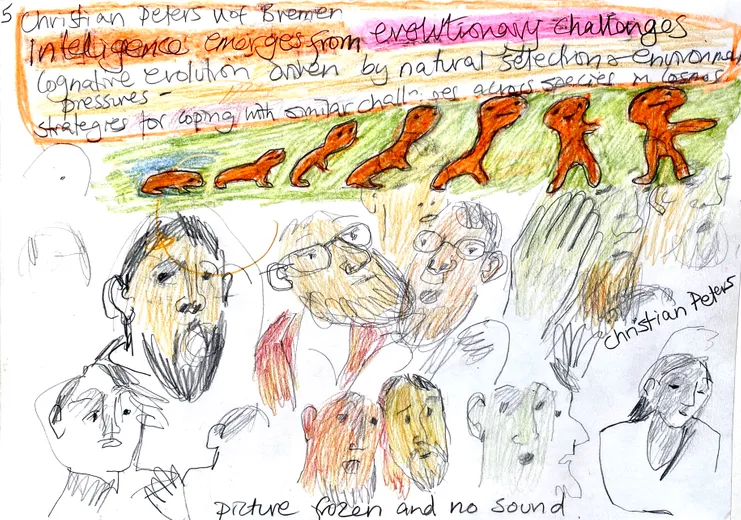 5 Christian Peters Uof Bremen
Intelligence emerges from evolutionary challenges
Cognative evolution driven by natural selection + environmen
pressures -
strategies for coping with similar chall ges across species in cosmos
Christian Peters
picture frozen and no sound